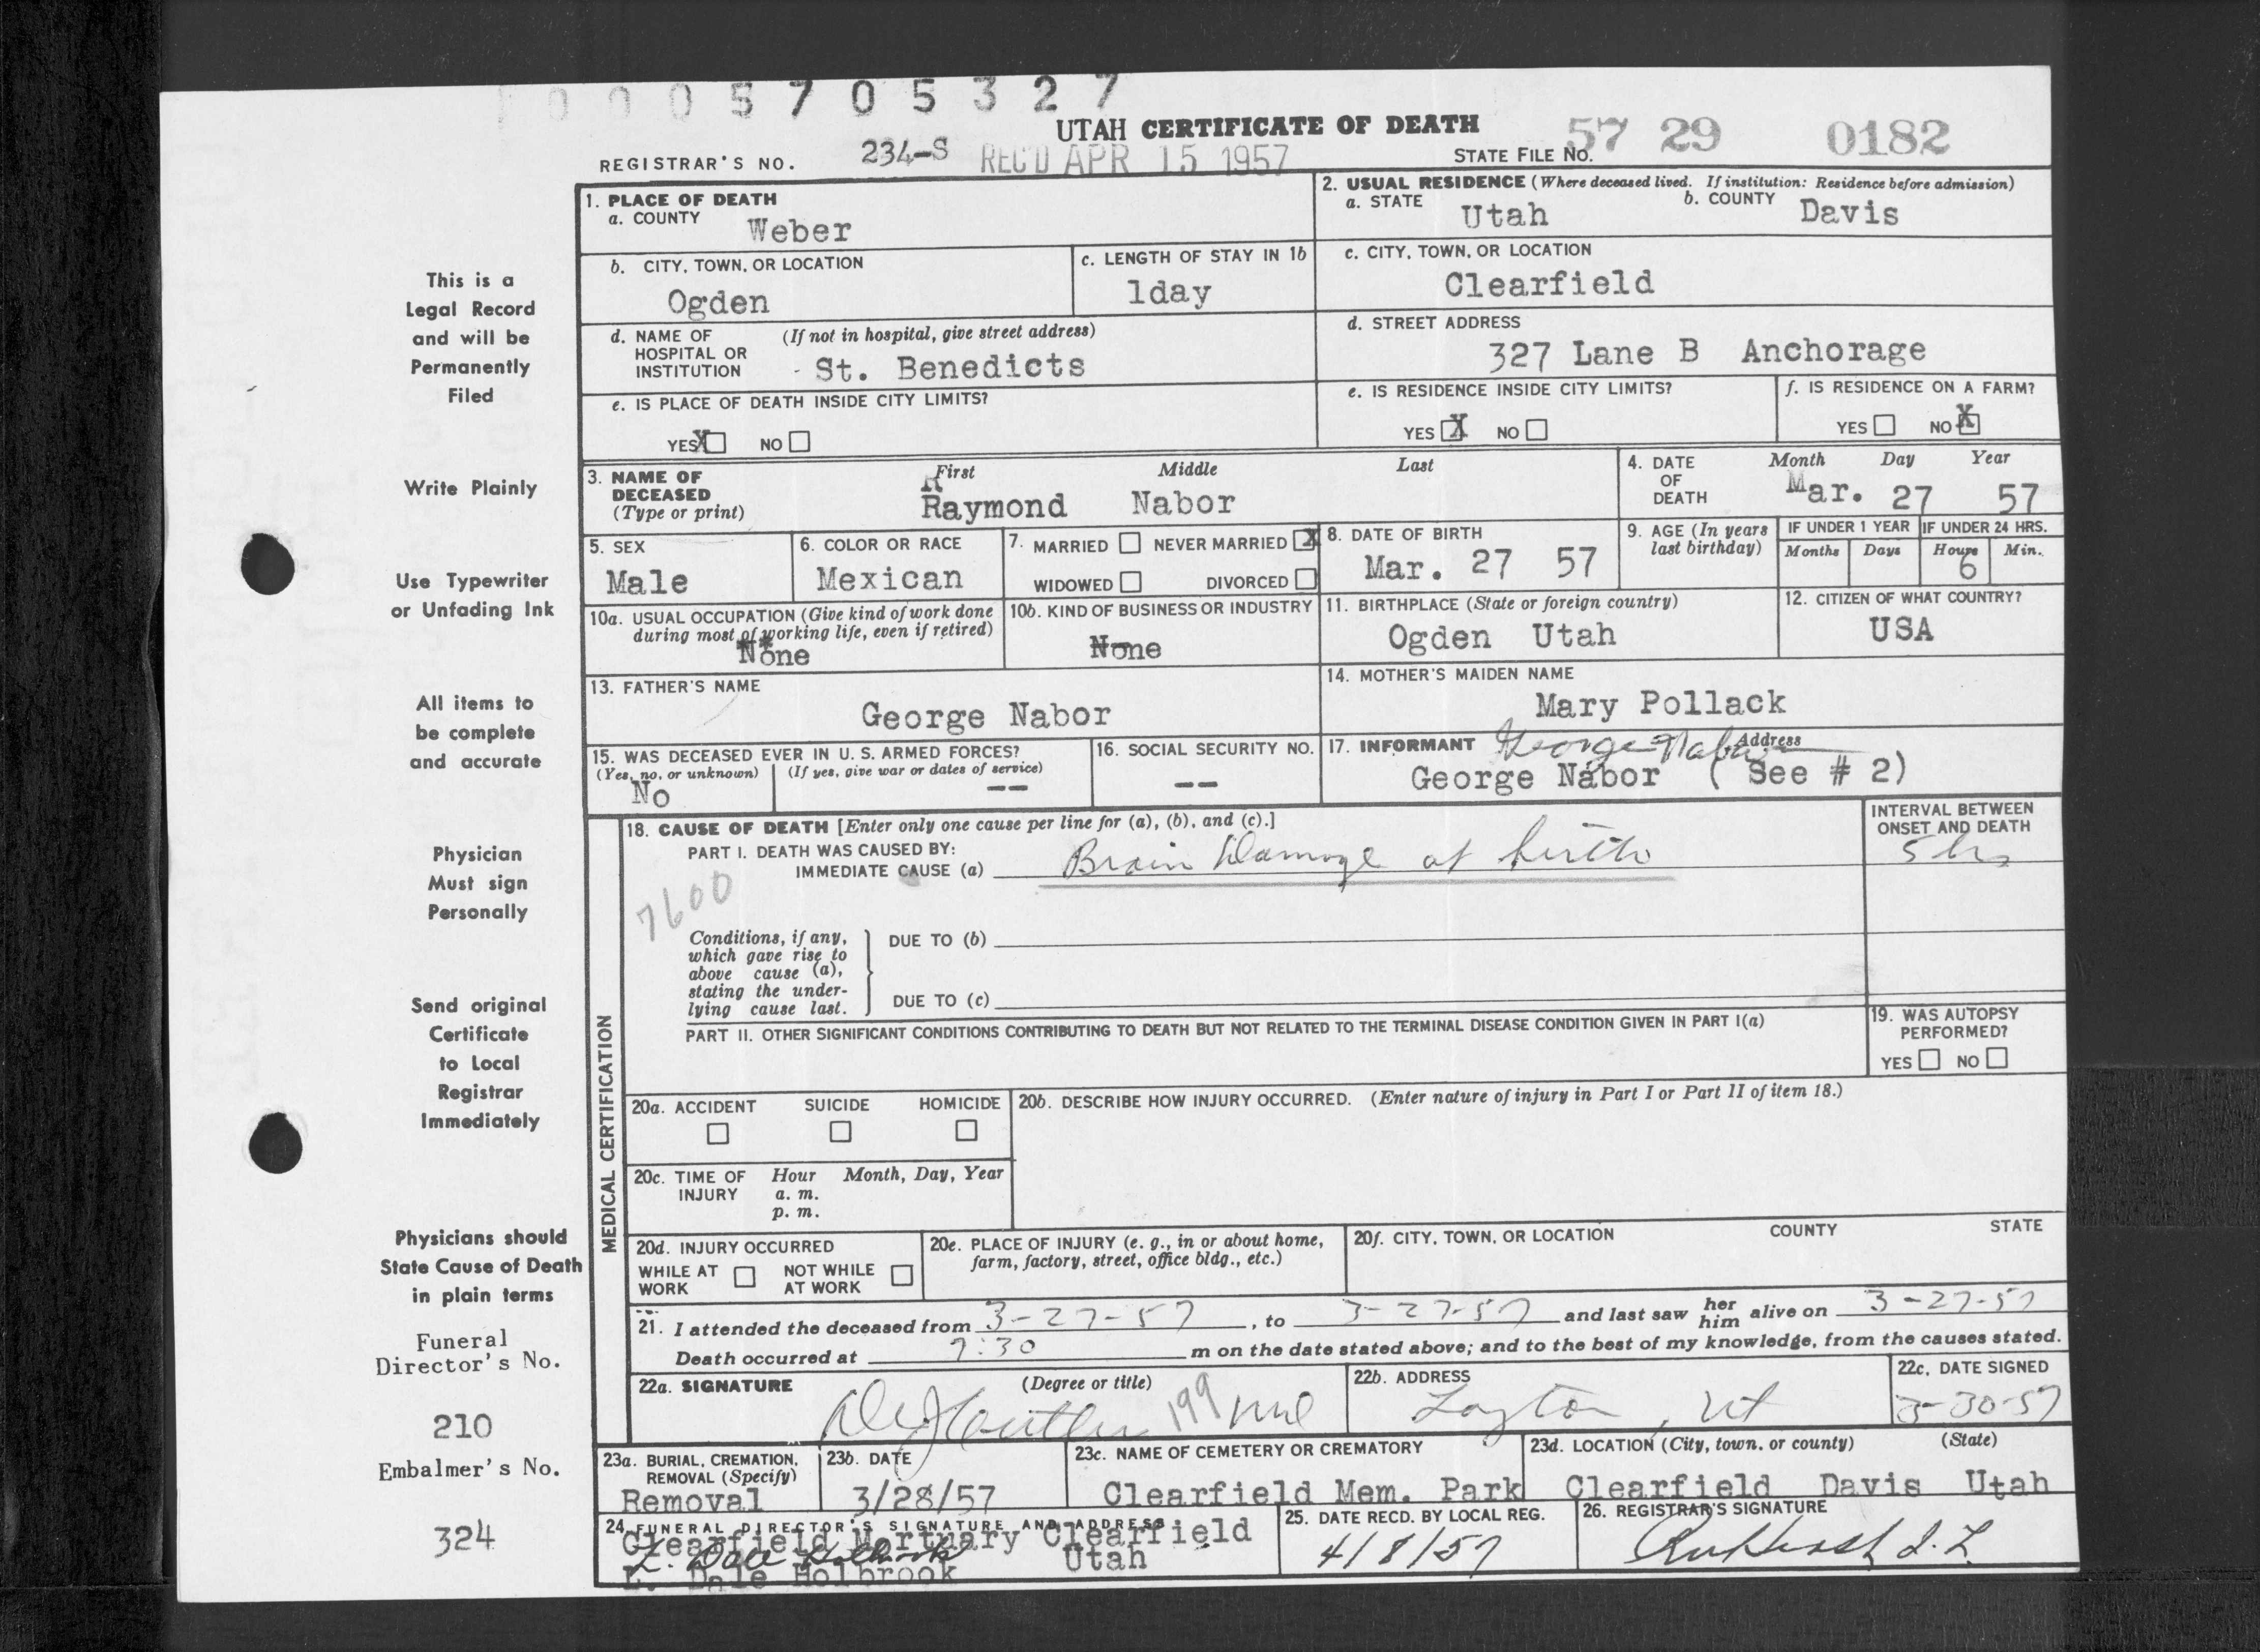 0005705327
UTAH CERTIFICATE OF DEATH
REGISTRAR'S NO. 234-S REC'D APR 15 1957 STATE FILE NO. 57 29 0182
1. PLACE OF DEATH
a. COUNTY Weber
2. USUAL RESIDENCE (Where deceased lived. If institution: Residence before admission)
a. STATE Utah b. COUNTY Davis
b. CITY, TOWN, OR LOCATION Ogden
c. LENGTH OF STAY IN 1b 1day
c. CITY, TOWN, OR LOCATION
Clearfield
d. NAME OF HOSPITAL OR INSTITUTION (If not in hospital, give street address)
St. Benedicts
d. STREET ADDRESS
327 Lane B Anchorage
e. IS PLACE OF DEATH INSIDE CITY LIMITS?
YES X NO
e. IS RESIDENCE INSIDE CITY LIMITS?
YES X NO
f. IS RESIDENCE ON A FARM?
YES NO X
3. NAME OF DECEASED (Type or print)
First Middle Last
R
Raymond Nabor
4. DATE OF DEATH Month Day Year
Mar. 27 57
5. SEX
Male
6. COLOR OR RACE
Mexican
7. MARRIED NEVER MARRIED X
WIDOWED DIVORCED
8. DATE OF BIRTH
Mar. 27 57
9. AGE (In years last birthday)
IF UNDER 1 YEAR IF UNDER 24 HRS.
Months Days Hours Min.
6
10a. USUAL OCCUPATION (Give kind of work done during most of working life, even if retired)
None
10b. KIND OF BUSINESS OR INDUSTRY
None
11. BIRTHPLACE (State or foreign country)
Ogden Utah
12. CITIZEN OF WHAT COUNTRY?
USA
13. FATHER'S NAME
George Nabor
14. MOTHER'S MAIDEN NAME
Mary Pollack
15. WAS DECEASED EVER IN U. S. ARMED FORCES?
(Yes, no, or unknown) (If yes, give war or dates of service)
No --
16. SOCIAL SECURITY NO.
--
17. INFORMANT George Nabor Address
George Nabor ( See # 2)
MEDICAL CERTIFICATION
18. CAUSE OF DEATH [Enter only one cause per line for (a), (b), and (c).]
INTERVAL BETWEEN ONSET AND DEATH
PART I. DEATH WAS CAUSED BY:
IMMEDIATE CAUSE (a) Brain Damage at birth 5 hrs
7600
Conditions, if any, which gave rise to above cause (a), stating the underlying cause last.
DUE TO (b)
DUE TO (c)
PART II. OTHER SIGNIFICANT CONDITIONS CONTRIBUTING TO DEATH BUT NOT RELATED TO THE TERMINAL DISEASE CONDITION GIVEN IN PART I(a)
19. WAS AUTOPSY PERFORMED?
YES NO
20a. ACCIDENT SUICIDE HOMICIDE
20b. DESCRIBE HOW INJURY OCCURRED. (Enter nature of injury in Part I or Part II of item 18.)
20c. TIME OF INJURY Hour Month, Day, Year
a. m.
p. m.
20d. INJURY OCCURRED
WHILE AT WORK NOT WHILE AT WORK
20e. PLACE OF INJURY (e. g., in or about home, farm, factory, street, office bldg., etc.)
20f. CITY, TOWN, OR LOCATION COUNTY STATE
21. I attended the deceased from 3-27-57, to 3-27-57 and last saw her him alive on 3-27-57
Death occurred at 7:30 m on the date stated above; and to the best of my knowledge, from the causes stated.
22a. SIGNATURE (Degree or title)
199
22b. ADDRESS
Layton, Ut
22c. DATE SIGNED
3-30-57
23a. BURIAL, CREMATION, REMOVAL (Specify)
Removal
23b. DATE
3/28/57
23c. NAME OF CEMETERY OR CREMATORY
Clearfield Mem. Park
23d. LOCATION (City, town, or county) (State)
Clearfield Davis Utah
24. FUNERAL DIRECTOR'S SIGNATURE AND ADDRESS
Clearfield Mortuary Clearfield
L. Dale Holbrook Utah
L. Dale Holbrook
25. DATE RECD. BY LOCAL REG.
4/8/57
26. REGISTRAR'S SIGNATURE
This is a
Legal Record
and will be
Permanently
Filed
Write Plainly
Use Typewriter
or Unfading Ink
All items to
be complete
and accurate
Physician
Must sign
Personally
Send original
Certificate
to Local
Registrar
Immediately
Physicians should
State Cause of Death
in plain terms
Funeral
Director's No.
210
Embalmer's No.
324